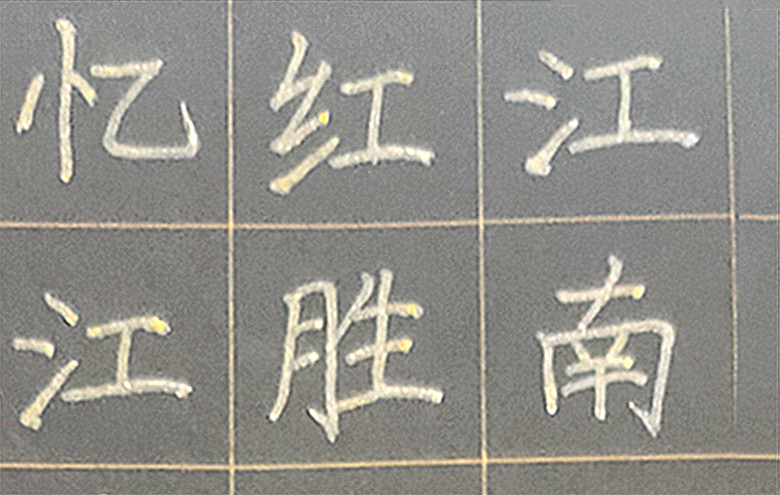 忆红江
江胜南